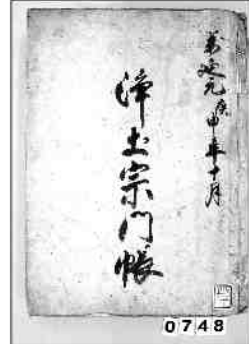 萬延元庚申年十月
浄土宗門帳
0748